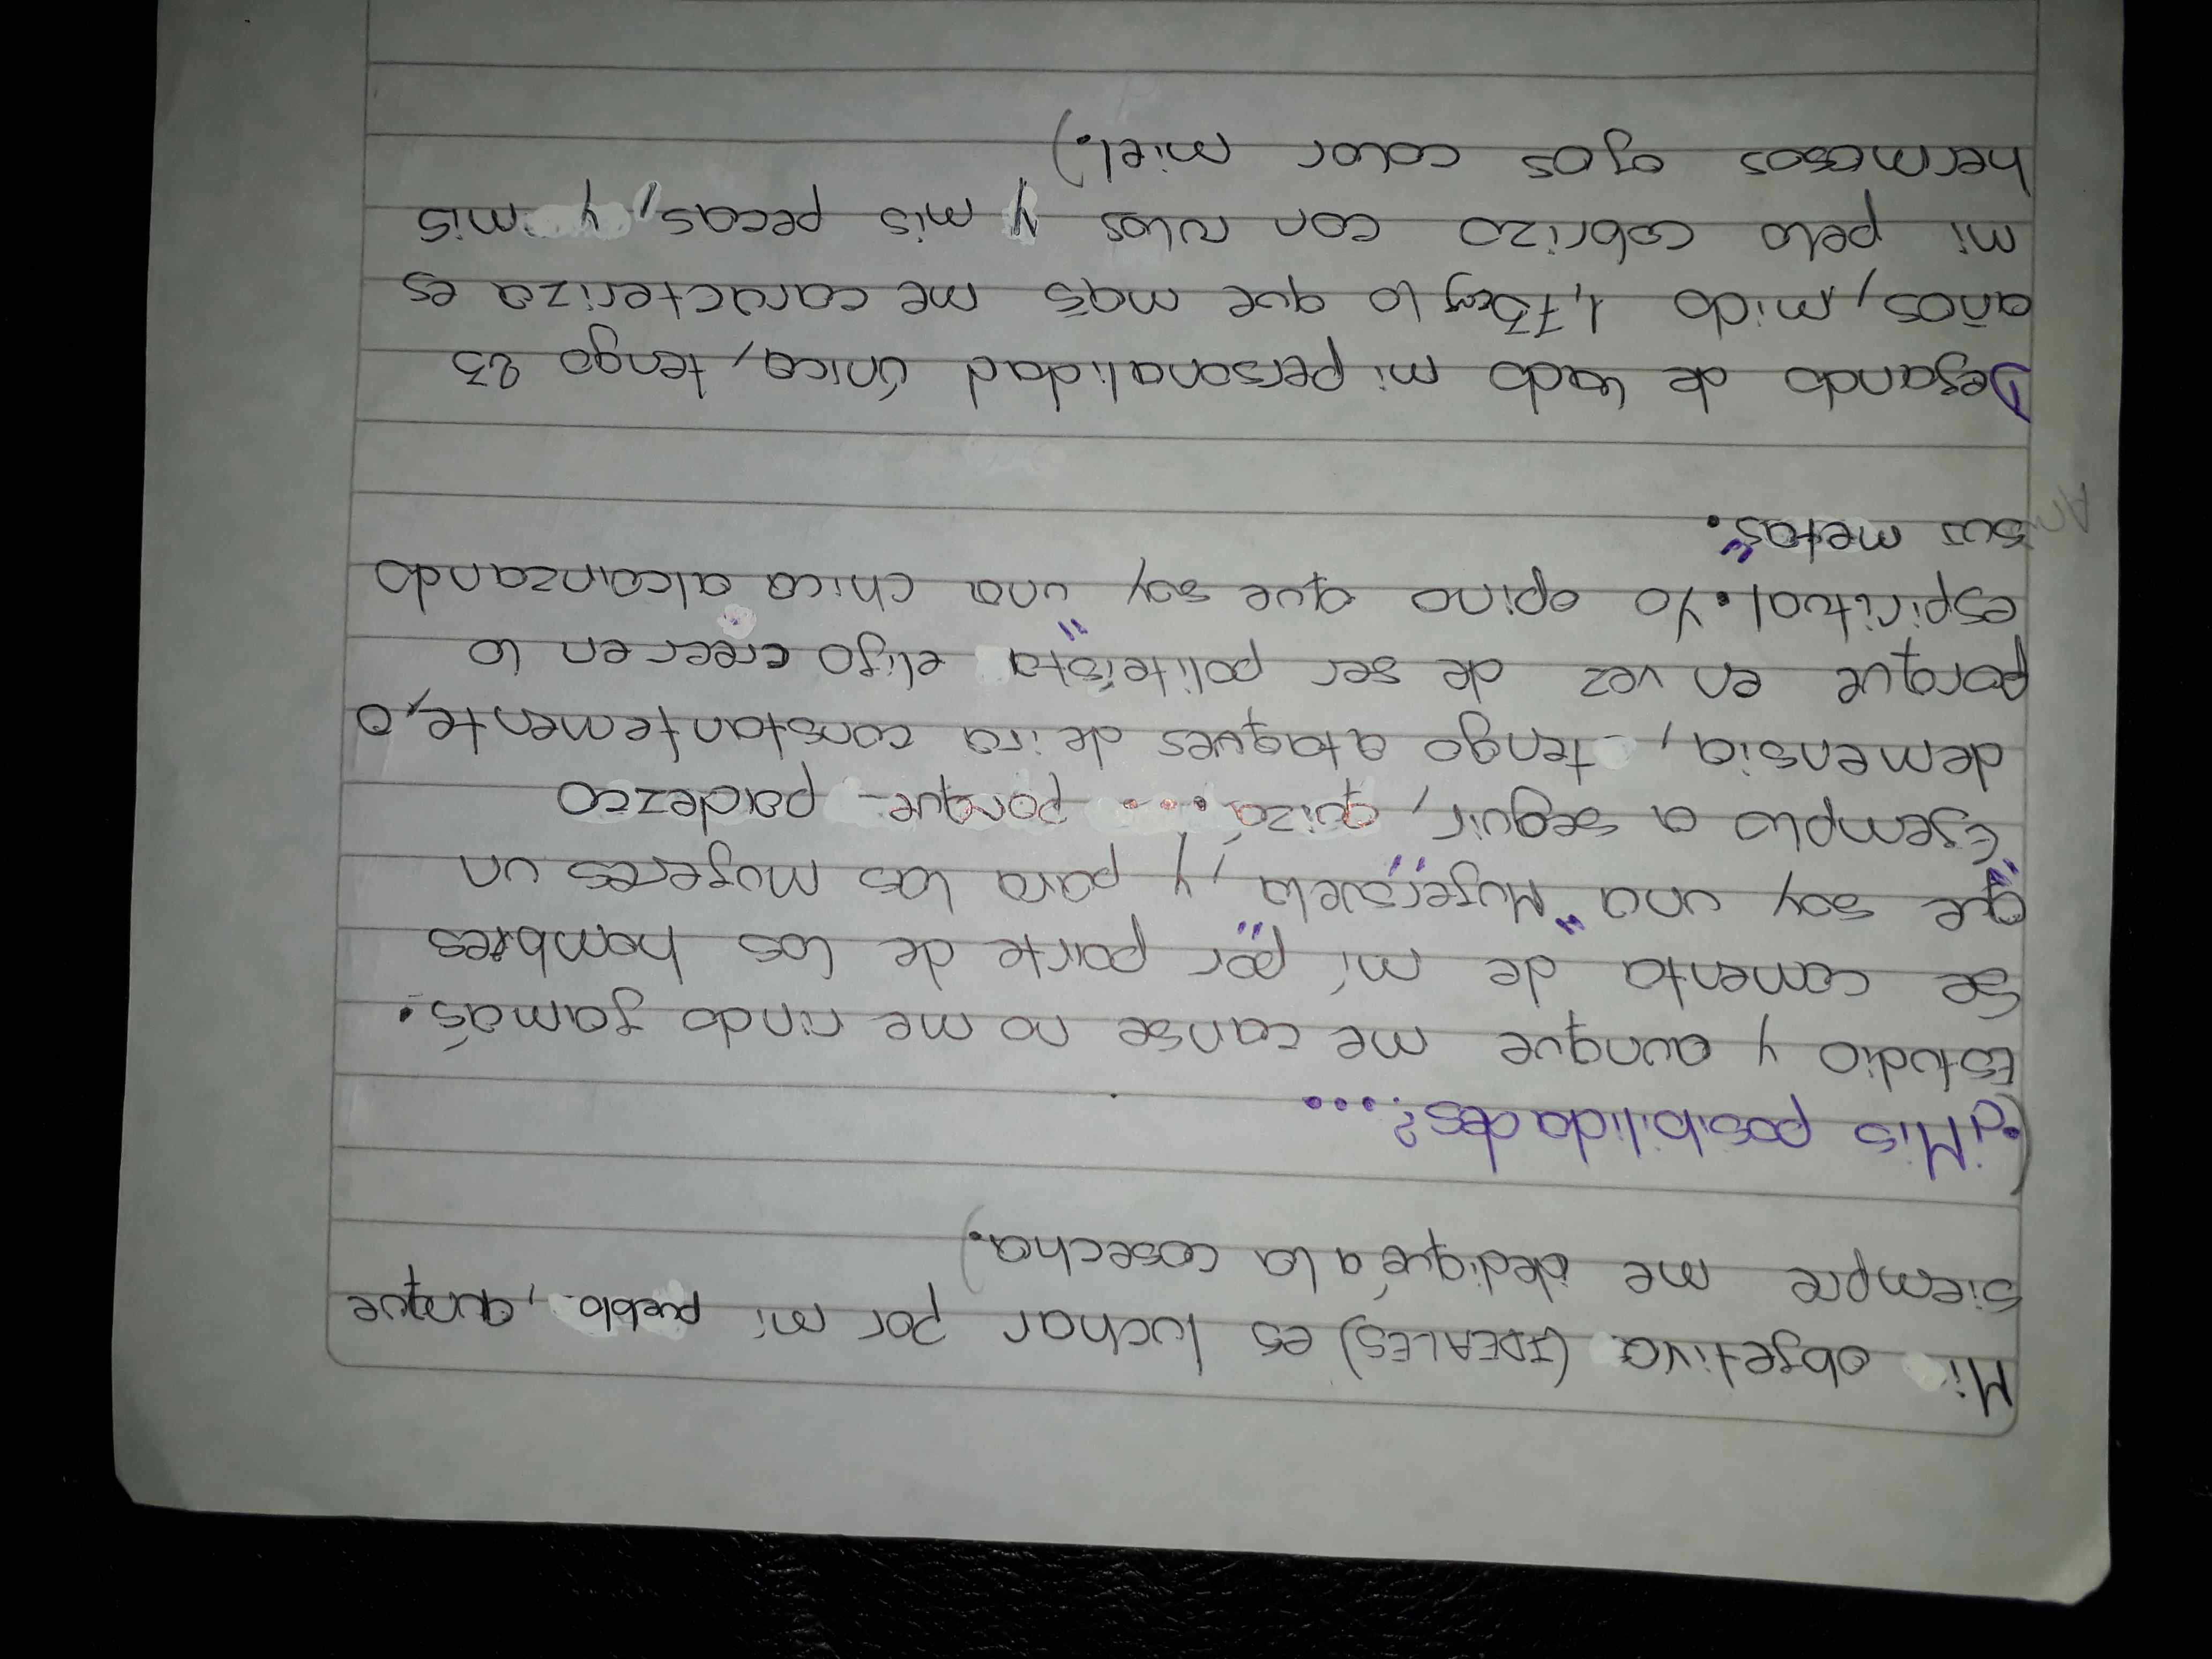 Mi objetivo (IDEALES) es luchar por mi pueblo, aunque
siempre me dediqué a la cosecha.)
(¿Mis posibilidades?....
Estudio y aunque me canse no me rindo jamás.
Se comenta de mí "por parte de los hombres"
que soy una "Mujersuela", y para las mujeres un
"Ejemplo a seguir", quizá... porque padezco
demensia, tengo ataques de ira constantemente, o
porque en vez de ser politeísta" elijo creer en lo
espiritual. Yo opino que soy una chica alcanzando
sus metas."
Dejando de lado mi personalidad única, tengo 23
años, mido 1,73 y lo que más me caracteriza es
mi pelo cobrizo con rulos y mis pecas, y mis
hermosos ojos color miel.)